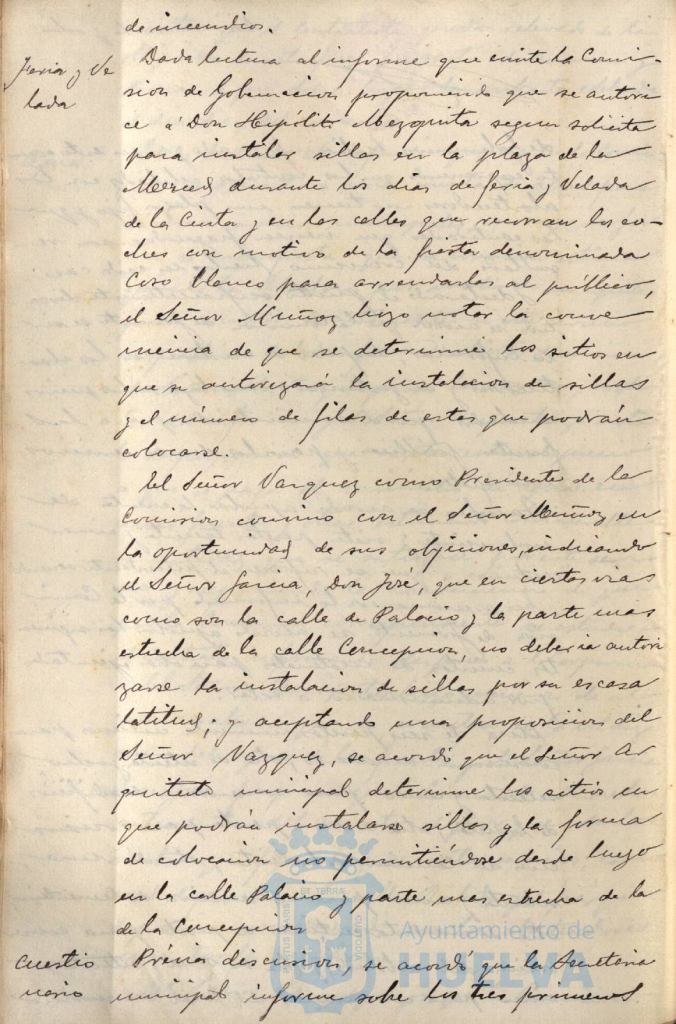 de incendios.
Feria y Ve
lada
Dada lectura al informe que emite la Comi-
sion de Gobernacion proponiendo que se autori
ce á Don Hipólito Mezquita segun solicita
para instalar sillas en la plaza de la
Merced durante los dias de feria y Velada
de la Cinta y en las calles que recorran los co-
ches con motivo de la fiesta denominada
Coso blanco para arrendarlas al público,
el Señor Muñoz hizo notar la conve
niencia de que se determine los sitios en
que se autorizará la instalacion de sillas
y el número de filas de estas que podrán
colocarse.
El Señor Vazquez como Presidente de la
Comision convino con el Señor Muñoz en
la oportunidad de sus objeciones, indicando
el Señor Garcia, Don José, que en ciertas vias
como son la calle de Palacio y la parte mas
estrecha de la calle Concepcion, no deberia autori
zarse la instalacion de sillas por su escasa
latitud; y aceptando una proposicion del
Señor Vazquez, se acordó que el Señor Ar
quitecto municipal determine los sitios en
que podrán instalarse sillas y la forma
de colocacion no permitiéndose desde luego
en la calle Palacio y parte mas estrecha de la
de la Concepcion
cuestio
nario
Prévia discusion, se acordó que la Secretaria
municipal informe sobre los tres primeros
Ayuntamiento de
HUELVA